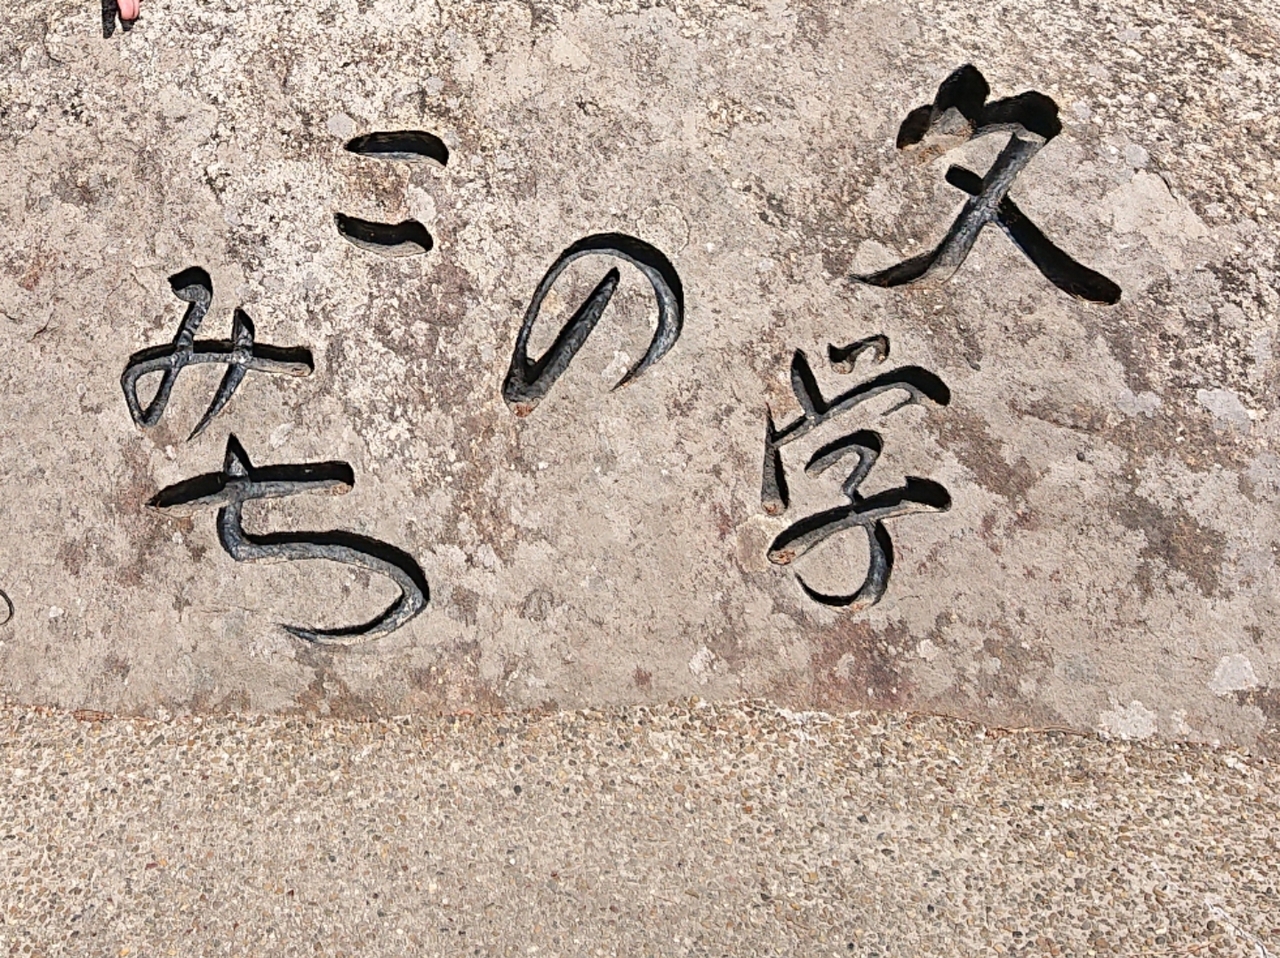 文学
の
こみち